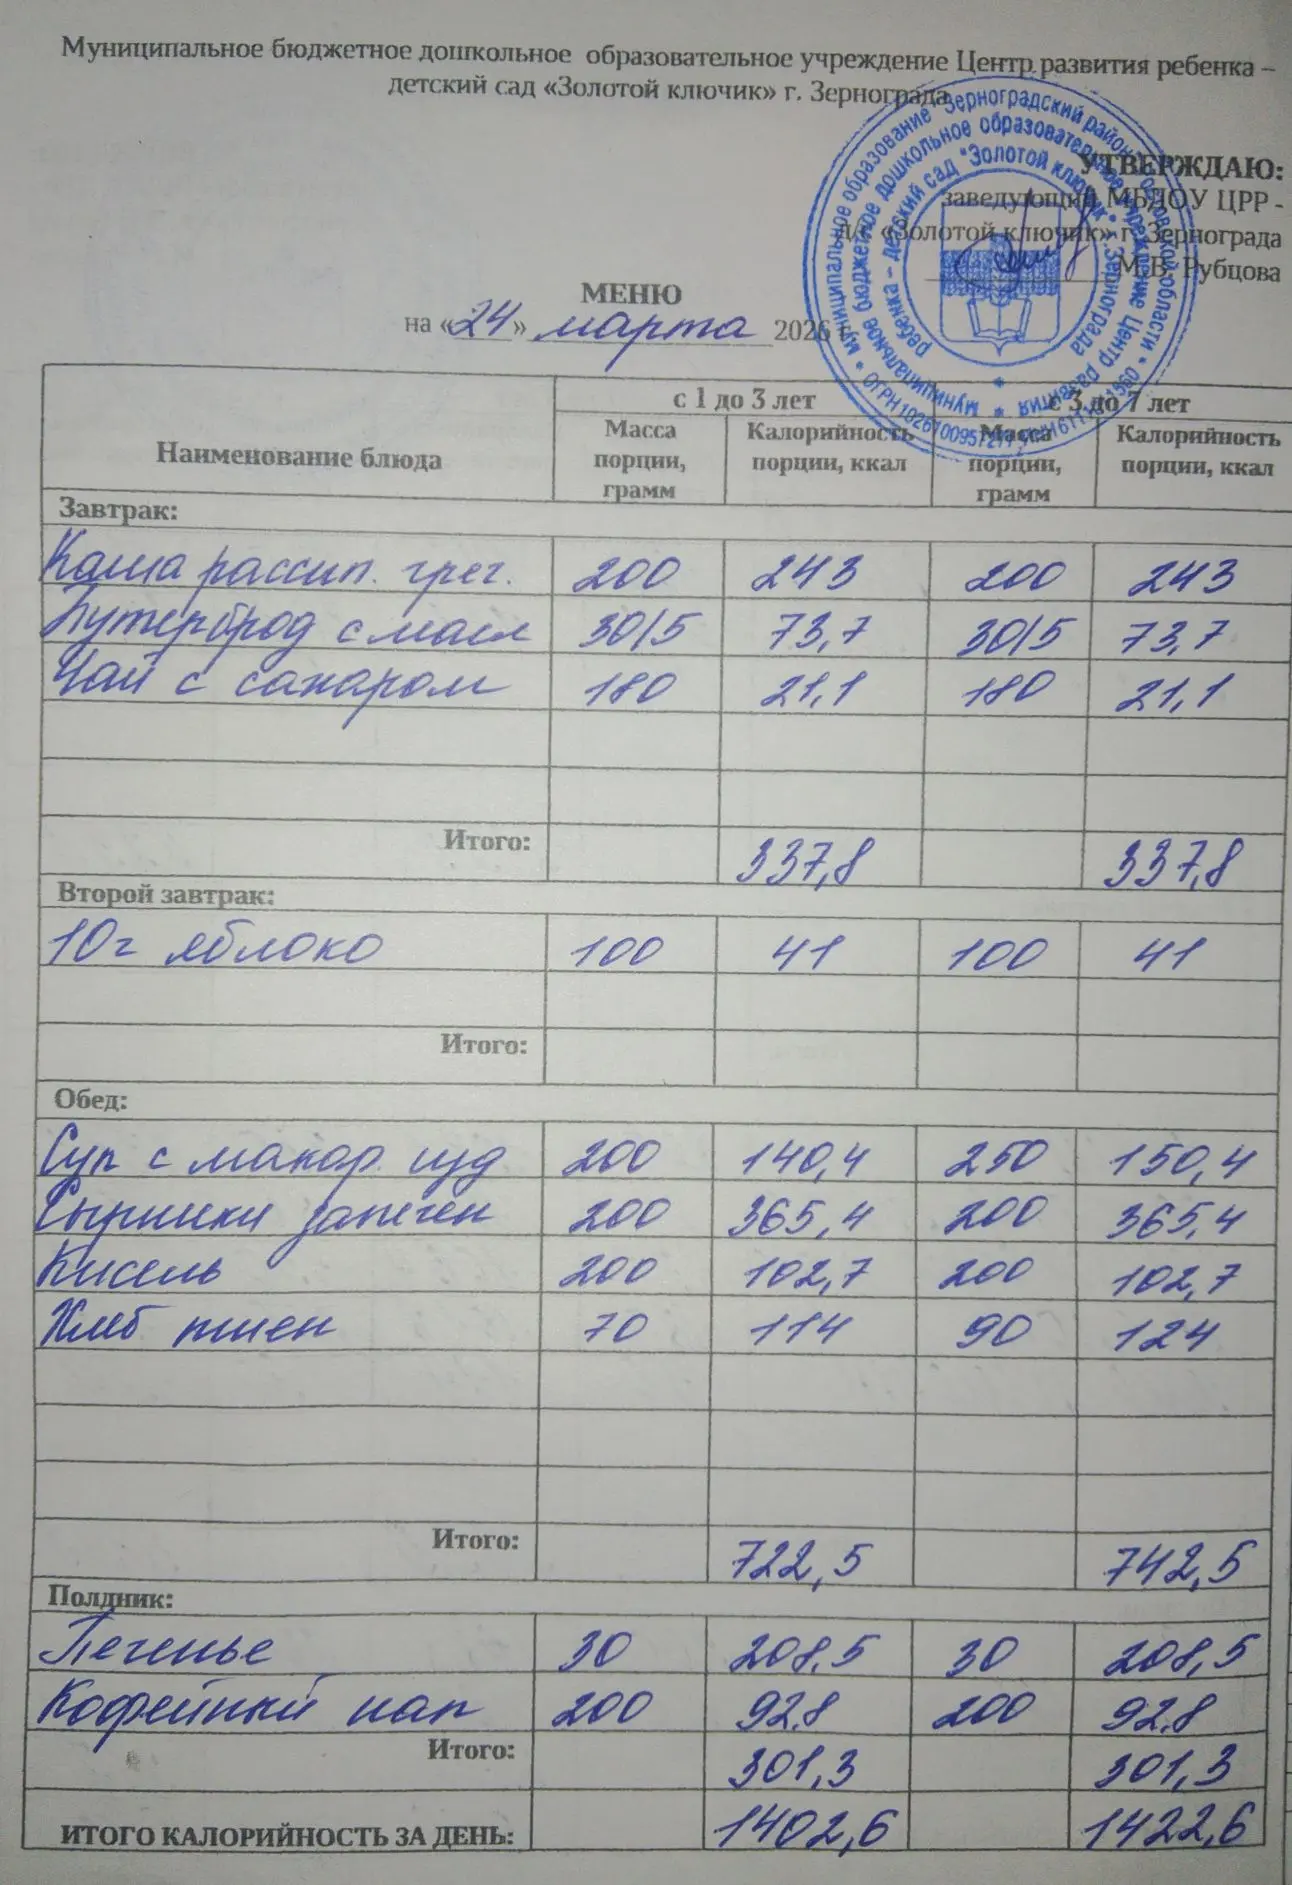 Муниципальное бюджетное дошкольное образовательное учреждение Центр развития ребенка –
детский сад «Золотой ключик» г. Зернограда
УТВЕРЖДАЮ:
заведующий МБДОУ ЦРР -
д/с «Золотой ключик» г. Зернограда
М.В. Рубцова
МЕНЮ
на «24» марта 2026 г
Наименование блюда | с 1 до 3 лет | с 3 до 7 лет
Масса порции, грамм | Калорийность порции, ккал | Масса порции, грамм | Калорийность порции, ккал
Завтрак:
Каша рассып. греч. 200 243 200 243
Бутерброд с масл 30/5 73,7 30/5 73,7
Чай с сахаром 180 21,1 180 21,1
Итого: 337,8 337,8
Второй завтрак:
10ч яблоко 100 41 100 41
Итого:
Обед:
Суп с макар. изд 200 140,4 250 150,4
Сырники запечен 200 365,4 200 365,4
Кисель 200 102,7 200 102,7
Хлеб пшен 70 114 90 124
Итого: 722,5 742,5
Полдник:
Печенье 30 208,5 30 208,5
Кофейный нап 200 92.8 200 92.8
Итого: 301,3 301,3
ИТОГО КАЛОРИЙНОСТЬ ЗА ДЕНЬ: 1402,6 1422,6